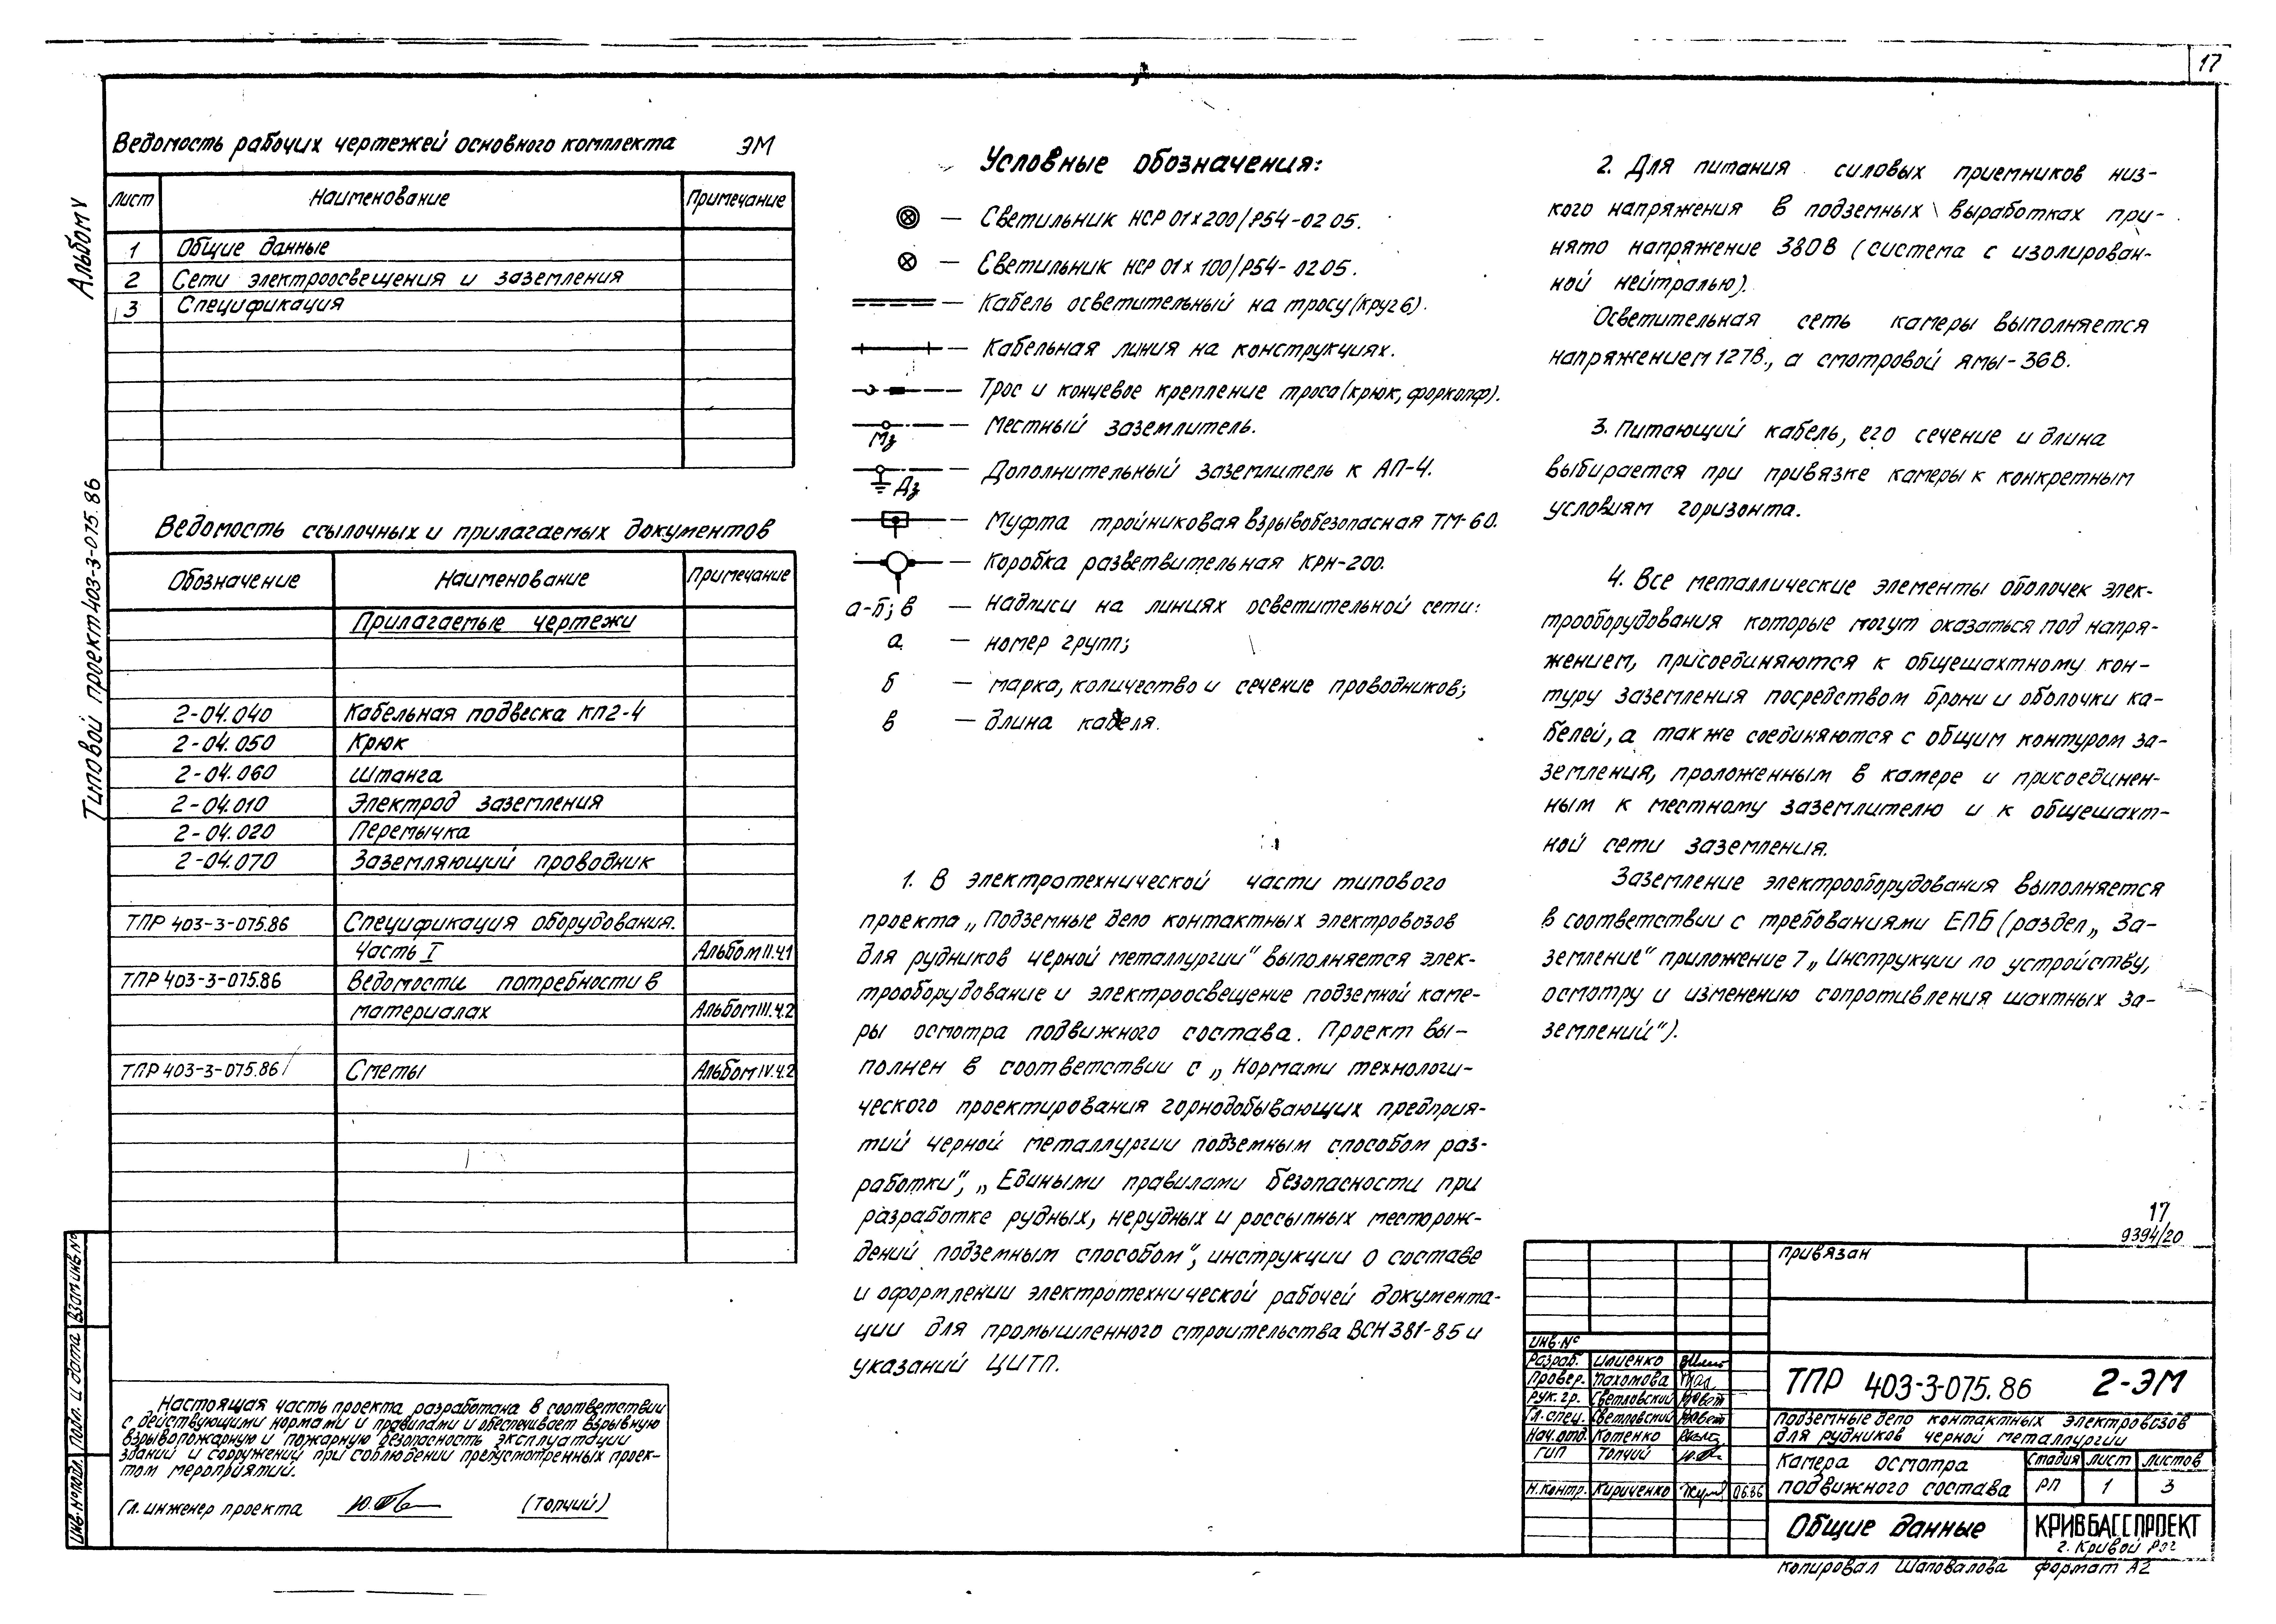 17
Альбом V
Типовой проект 403-3-075.86
Ведомость рабочих чертежей основного комплекта ЭМ
Лист Наименование Примечание
1 Общие данные
2 Сети электроосвещения и заземления
3 Спецификация
Ведомость ссылочных и прилагаемых документов
Обозначение Наименование Примечание
Прилагаемые чертежи
2-04.040 Кабельная подвеска КП2-4
2-04.050 Крюк
2-04.060 Штанга
2-04.010 Электрод заземления
2-04.020 Перемычка
2-04.070 Заземляющий проводник
ТПР 403-3-075.86 Спецификация оборудования.
Часть I Альбом II.ч.1
ТПР 403-3-075.86 Ведомости потребности в
материалах Альбом III.ч.2
ТПР 403-3-075.86 Сметы Альбом IV.ч.2
Настоящая часть проекта разработана в соответствии
с действующими нормами и правилами и обеспечивает взрывную
взрывопожарную и пожарную безопасность эксплуатации
зданий и сооружений при соблюдении предусмотренных проек-
том мероприятий.
Гл. инженер проекта (Топчий)
Взам инв № Подп. и дата Инв. № подл.
Условные обозначения:
— Светильник НСР 01х200/Р54-02 05.
— Светильник НСР 01х100/Р54-02 05.
— Кабель осветительный на тросу (круг 6).
— Кабельная линия на конструкциях.
— Трос и концевое крепление троса (крюк, форкопф).
Мз — Местный заземлитель.
Дз — Дополнительный заземлитель к АП-4.
— Муфта тройниковая взрывобезопасная ТМ-60.
— Коробка разветвительная КРН-200.
а-б; в — Надписи на линиях осветительной сети:
а — номер групп;
б — марка, количество и сечение проводников;
в — длина кабеля.
1. В электротехнической части типового
проекта „Подземные депо контактных электровозов
для рудников черной металлургии" выполняется элек-
трооборудование и электроосвещение подземной каме-
ры осмотра подвижного состава. Проект вы-
полнен в соответствии с „Нормами технологи-
ческого проектирования горнодобывающих предприя-
тий черной металлургии подземным способом раз-
работки", „Едиными правилами безопасности при
разработке рудных, нерудных и россыпных месторож-
дений подземным способом", инструкции о составе
и оформлении электротехнической рабочей документа-
ции для промышленного строительства ВСН 381-85 и
указаний ЦИТП.
2. Для питания силовых приемников низ-
кого напряжения в подземных выработках при-
нято напряжение 380В (система с изолирован-
ной нейтралью).
Осветительная сеть камеры выполняется
напряжением 127В., а смотровой ямы-36В.
3. Питающий кабель, его сечение и длина
выбирается при привязке камеры к конкретным
условиям горизонта.
4. Все металлические элементы оболочек элек-
трооборудования которые могут оказаться под напря-
жением, присоединяются к общешахтному кон-
туру заземления посредством брони и оболочки ка-
белей, а также соединяются с общим контуром за-
земления, проложенным в камере и присоединен-
ным к местному заземлителю и к общешахт-
ной сети заземления.
Заземление электрооборудования выполняется
в соответствии с требованиями ЕПБ (раздел „За-
земление" приложение 7 „Инструкции по устройству,
осмотру и изменению сопротивления шахтных за-
землений").
17
9394/20
Привязан
Инв. №
Разраб. Илиенко
Провер. Пахомова
Рук. гр. Светловский
Гл. спец. Светловский
Нач. отд. Котенко
ГИП Топчий
Н. контр. Кириченко 06.86
ТПР 403-3-075.86 2-ЭМ
Подземные депо контактных электровозов
для рудников черной металлургии
Камера осмотра
подвижного состава
Стадия Лист Листов
РП 1 3
Общие данные
КРИВБАССПРОЕКТ
г. Кривой Рог
Копировал Шаповалова Формат А2